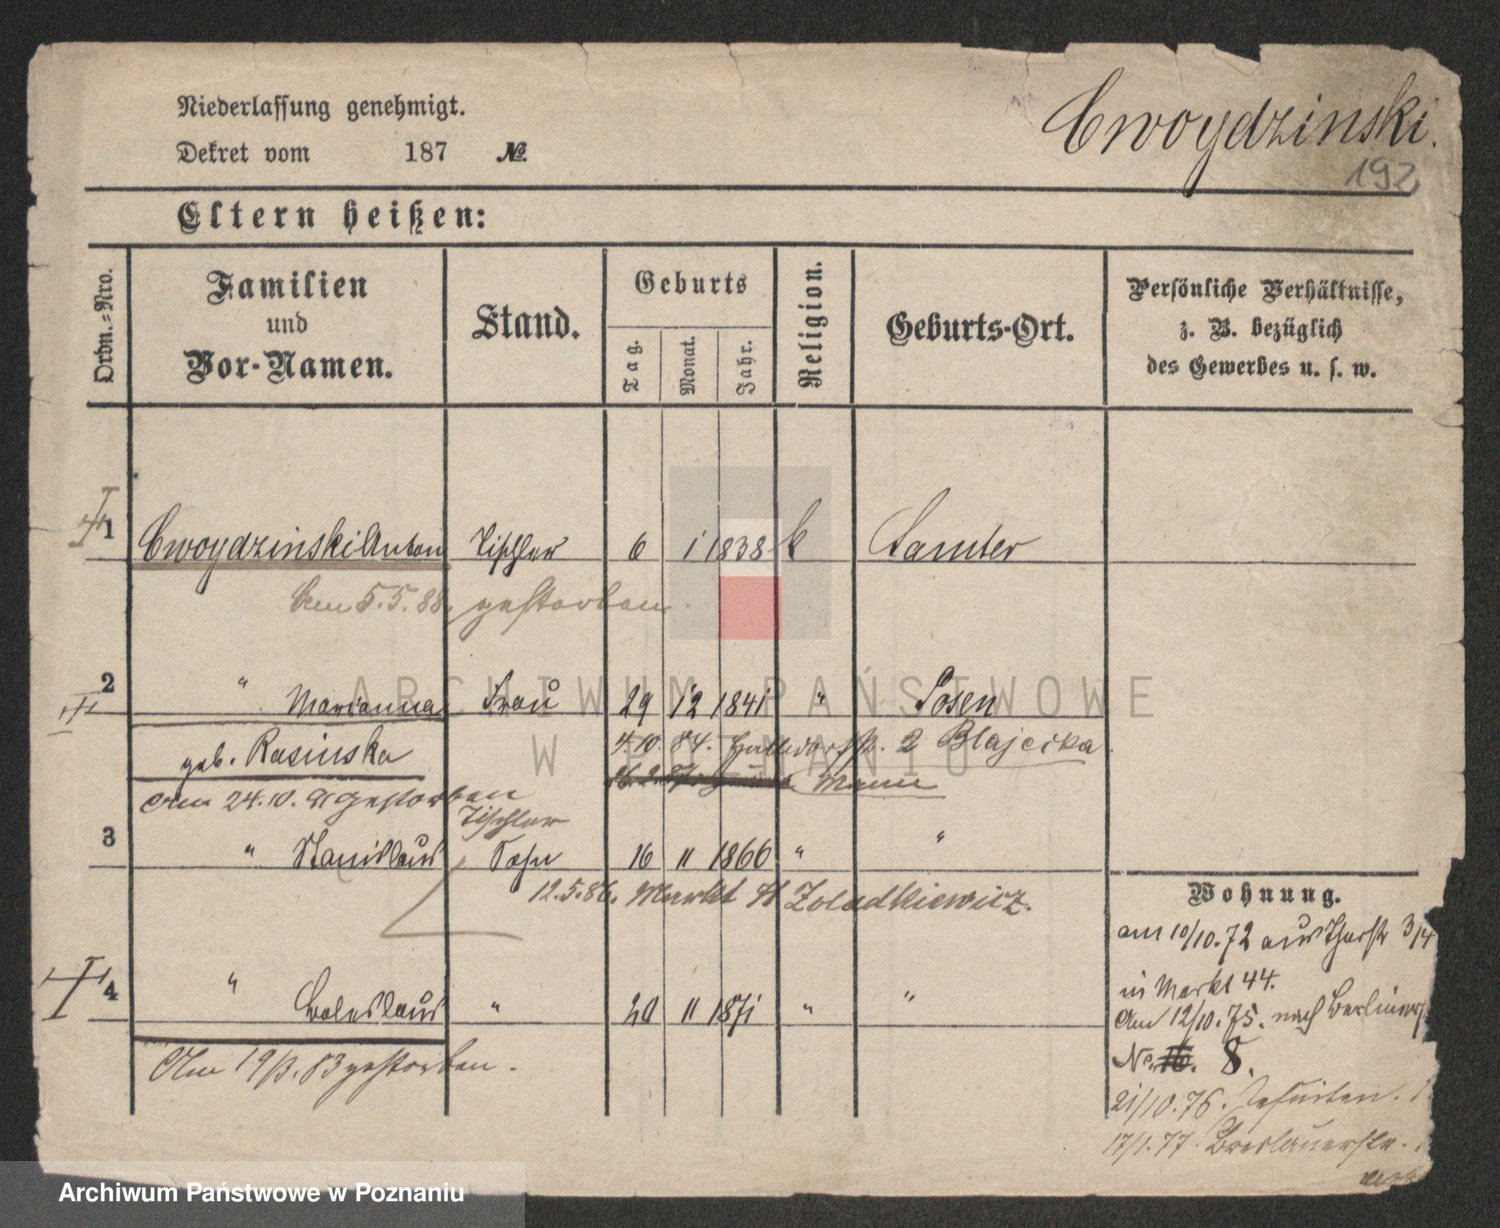 Niederlassung genehmigt.
Cwoydzinski.
Dekret vom 187 №
192
Eltern heißen:
Ordn.-Nro.
Familien und Vor-Namen.
Stand.
Geburts
Tag.
Monat.
Jahr.
Religion.
Geburts-Ort.
Persönliche Verhältnisse,
z. B. bezüglich
des Gewerbes u. s. w.
1 Cwoydzinski Anton Tischler 6 1 1838 k Samter
Am 5.5.88. gestorben.
2 " Marianna Frau 29 12 1841 " Posen
geb. Rasinska
4.10.84. 2 Blajecka
Mann
Am 24.10. gestorben
Tischler
3 " Stanislaus Sohn 16 11 1866 " "
12.5.86. Markt Zoladkiewicz.
4 " Boleslaus " 20 11 1871 " "
Am 19/3.83 gestorben.
Wohnung.
am 10/10.72 aus 3/4
in Markt 44.
Am 12/10.75. nach Berliners
No. 16. 8.
21/10.76. Jesuiten.
17/1.77. Breslauerstr.
ARCHIWUM PAŃSTWOWE
W POZNANIU
Archiwum Państwowe w Poznaniu